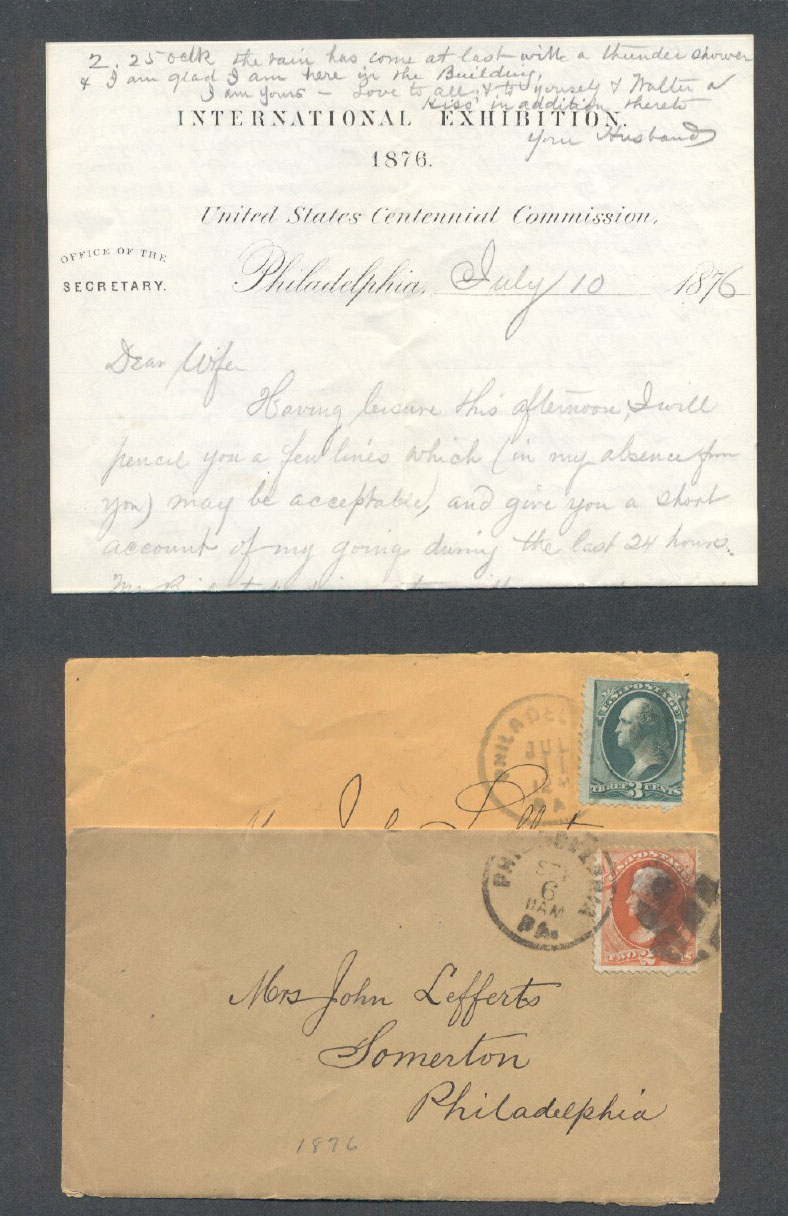 2.25 oclk the rain has come at last with a thunder shower
& I am glad I am here in the Building,
I am yours - Love to all & to yourself & Walter a
Kiss in addition thereto
your Husband
INTERNATIONAL EXHIBITION.
1876.
United States Centennial Commission,
OFFICE OF THE
SECRETARY.
Philadelphia, July 10 1876
Dear Wife
Having leisure this afternoon, I will
pencil you a few lines which (in my absence from
you) may be acceptable, and give you a short
account of my goings during the last 24 hours.
U.S. POSTAGE
THREE 3 CENTS
PHILADEL
JUL
11
12 M
PA
U.S. POSTAGE
TWO 2 CENTS
PHILADELPHIA
SEP
6
11AM
PA.
Mrs John Lefferts
Somerton
Philadelphia
1876